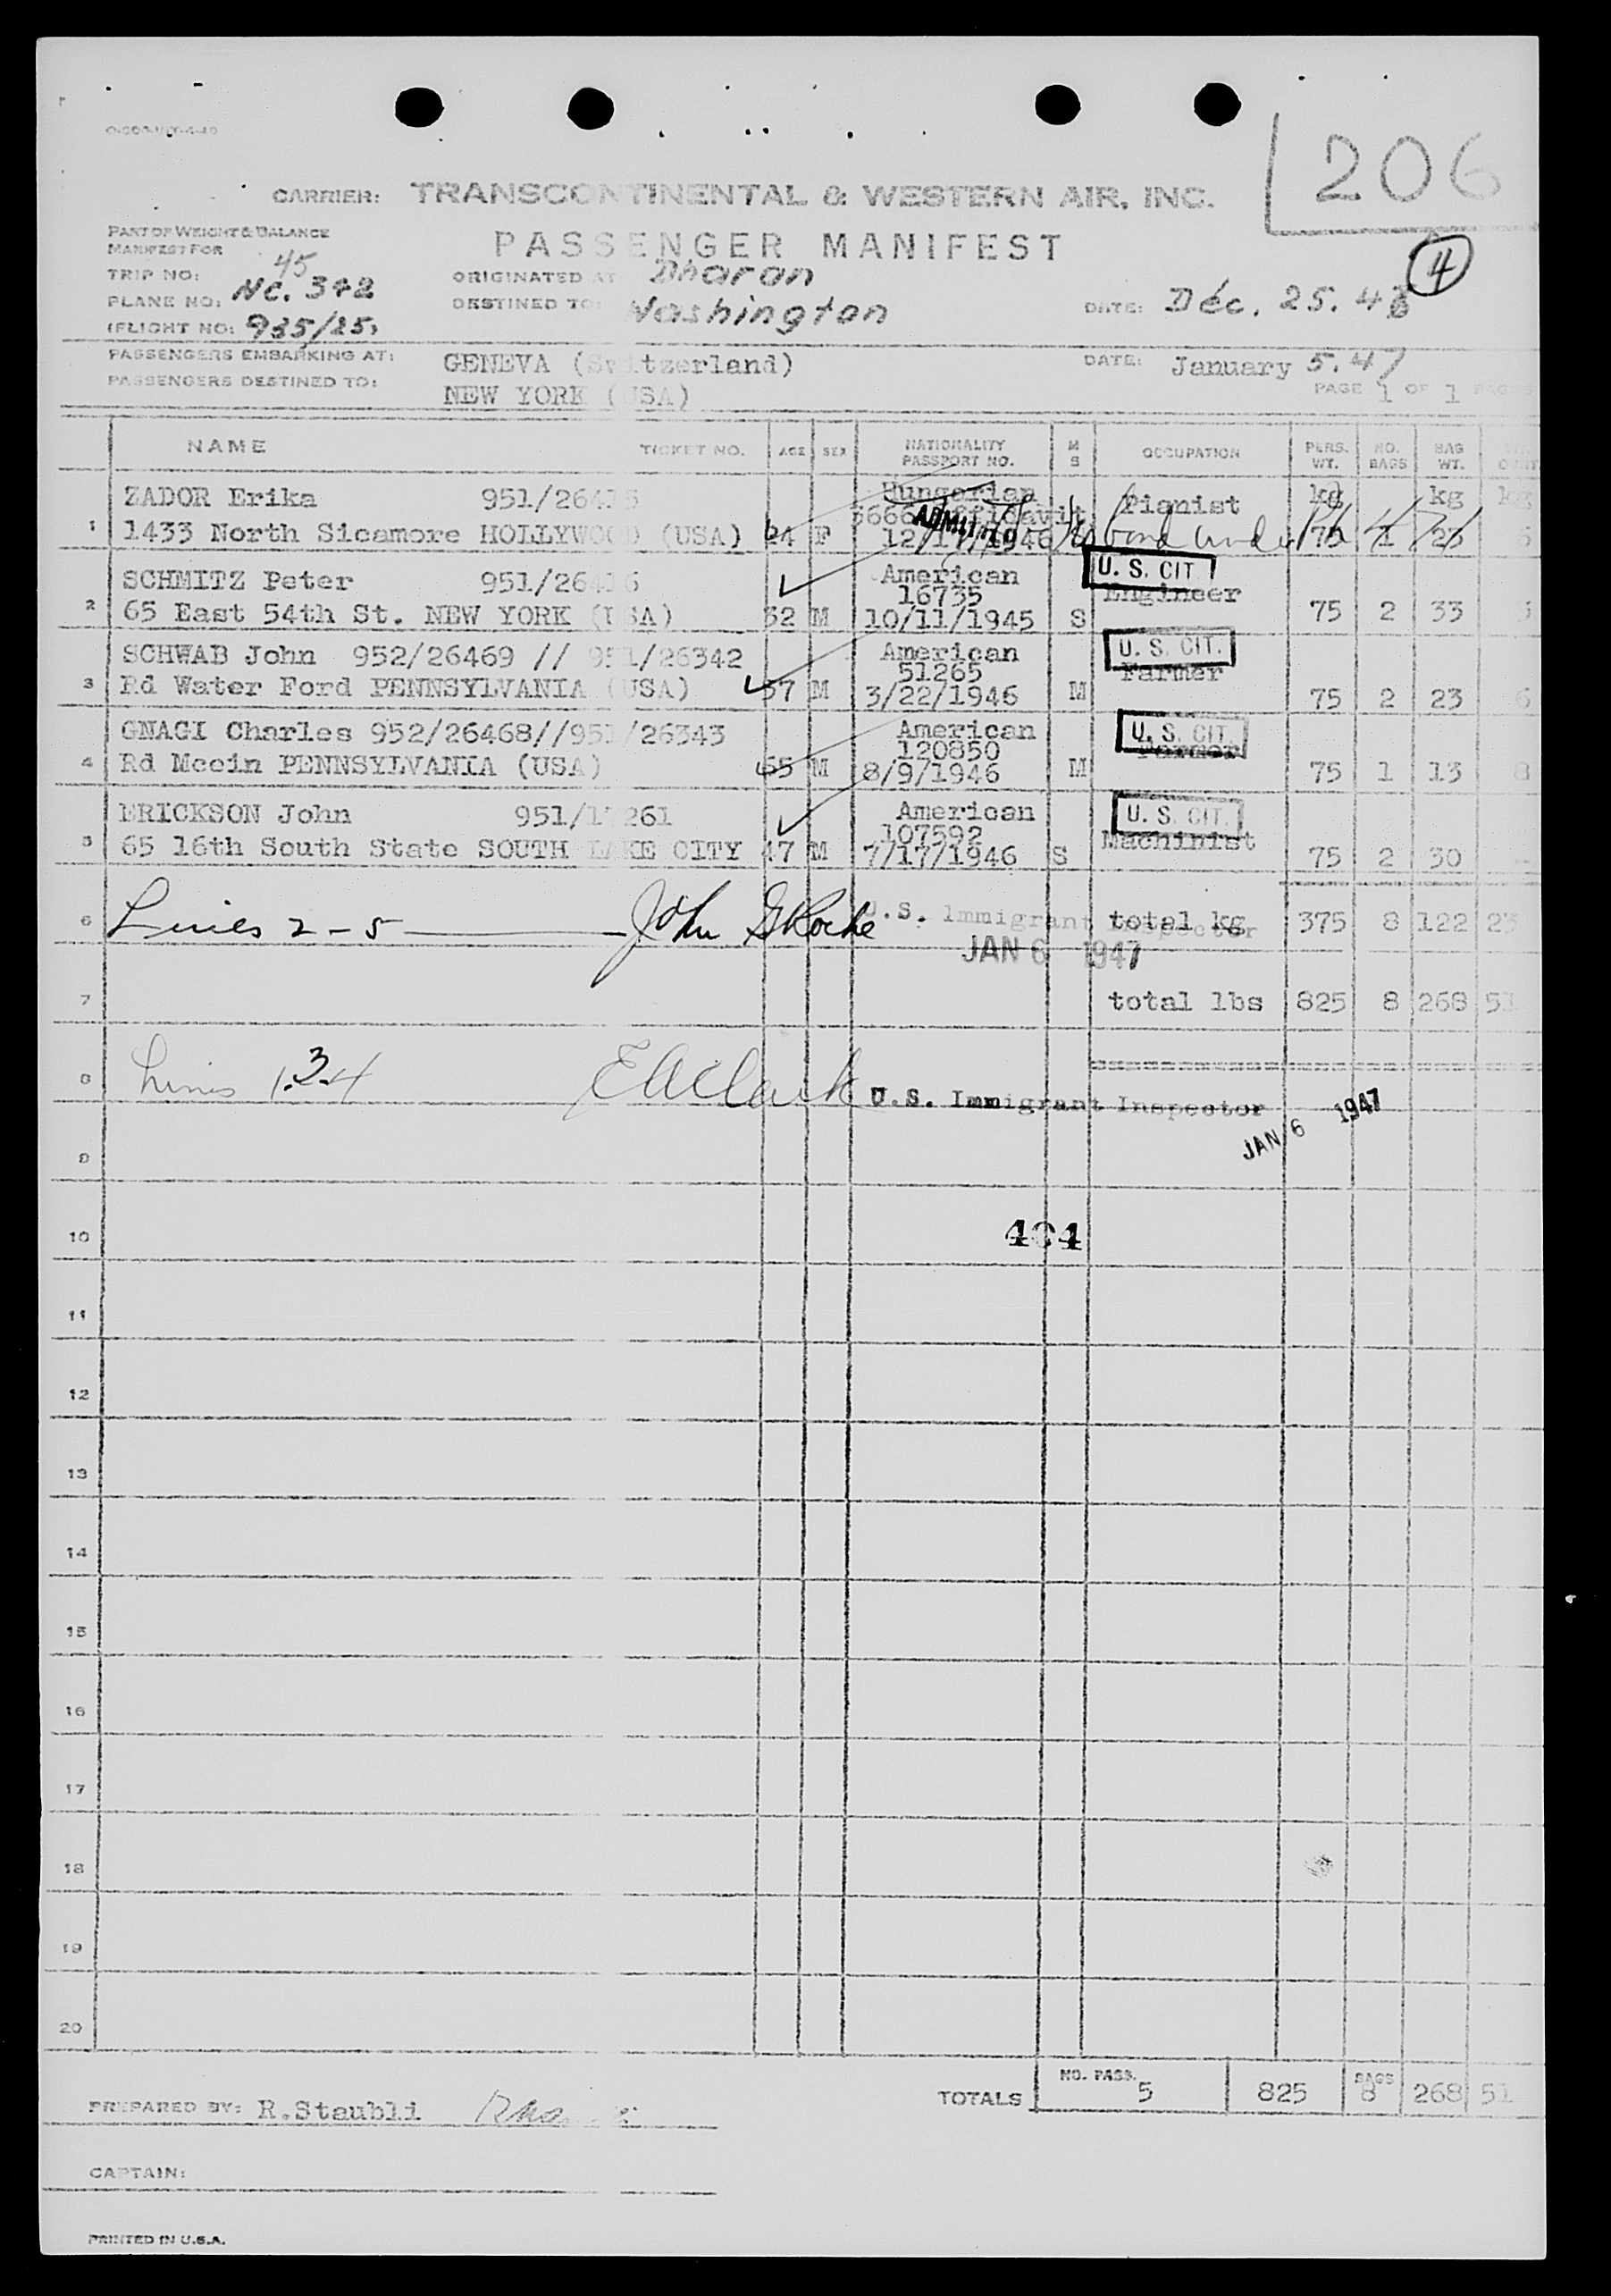 206
CARRIER: TRANSCONTINENTAL & WESTERN AIR, INC.
PART OF WEIGHT & BALANCE
MANIFEST FOR
PASSENGER MANIFEST
4
TRIP NO: 45
ORIGINATED AT Dharan
PLANE NO: NC. 342
DESTINED TO: Washington
DATE: Déc. 25. 46
(FLIGHT NO: 935/25)
PASSENGERS EMBARKING AT: GENEVA (Switzerland)
DATE: January 5.47
PASSENGERS DESTINED TO: NEW YORK (USA)
PAGE 1 OF 1 PAGES
NAME TICKET NO. AGE SEX NATIONALITY PASSPORT NO. M S OCCUPATION PERS. WT. NO. BAGS BAG WT.
ZADOR Erika 951/26415 Hungarian Pianist kg kg kg
affidavit
ADMITTED
1 1433 North Sicamore HOLLYWOOD (USA) 24 F 12/17/1946 bond under 75 1 23 6
SCHMITZ Peter 951/26416 American U. S. CIT.
16735 Engineer
2 65 East 54th St. NEW YORK (USA) 32 M 10/11/1945 S 75 2 33
SCHWAB John 952/26469 // 951/26342 American U. S. CIT.
51265 Farmer
3 Rd Water Ford PENNSYLVANIA (USA) 57 M 3/22/1946 M 75 2 23 6
GNAGI Charles 952/26468//951/26343 American U. S. CIT.
120850 Farmer
4 Rd Mccin PENNSYLVANIA (USA) 65 M 8/9/1946 M 75 1 13 8
ERICKSON John 951/17261 American U. S. CIT.
107592 Machinist
5 65 16th South State SOUTH LAKE CITY 47 M 7/17/1946 S 75 2 30 -
6 Lines 2-5 John G Roche U.S. Immigrant Inspector total kg 375 8 122 23
JAN 6 1947
7 total lbs 825 8 268 51
8 Lines 1.3.4 E A Clark U.S. Immigrant Inspector
JAN 6 1947
9
10 404
11
12
13
14
15
16
17
18
19
20
TOTALS NO. PASS. 5 825 BAGS 8 268 51
PREPARED BY: R.Staubli
CAPTAIN:
PRINTED IN U.S.A.